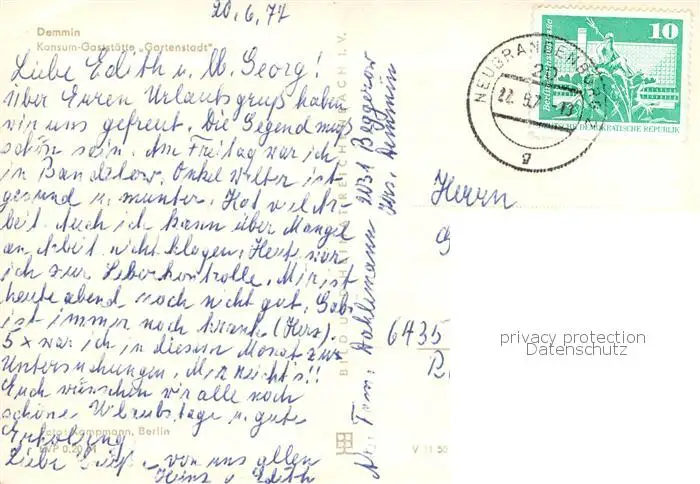 20.6.74
Demmin
Konsum-Gaststätte „Gartenstadt"
Liebe Edith u. Georg!
Über Euren Urlaubsgruß haben
wir uns gefreut. Die Gegend muß
schön sein. Am Freitag war ich
in Bandelow. Onkel Walter ist
gesund u. munter. Hat viel Ar-
beit. Auch ich kann über Mangel
an Arbeit nicht klagen. Heute war
ich zur Leberkontrolle. Mir ist
heute abend noch nicht gut.
ist immer noch krank (Herz).
5 x war ich in diesem Monat zur
Untersuchungen. Mir reicht's!!
Euch wünschen wir alle noch
schöne Urlaubstage u. gute
Erholung
Foto: Kampmann, Berlin
EVP 0.20 M
Liebe Grüße von uns allen
Heinz u. Edith
BILD UND HEIMAT REICHENBACH I. V.
2031 Beggerow
Krs. Demmin
V 11 50
10
DEUTSCHE DEMOKRATISCHE REPUBLIK
NEUBRANDENBURG
20
g
Herrn
6435
privacy protection
Datenschutz